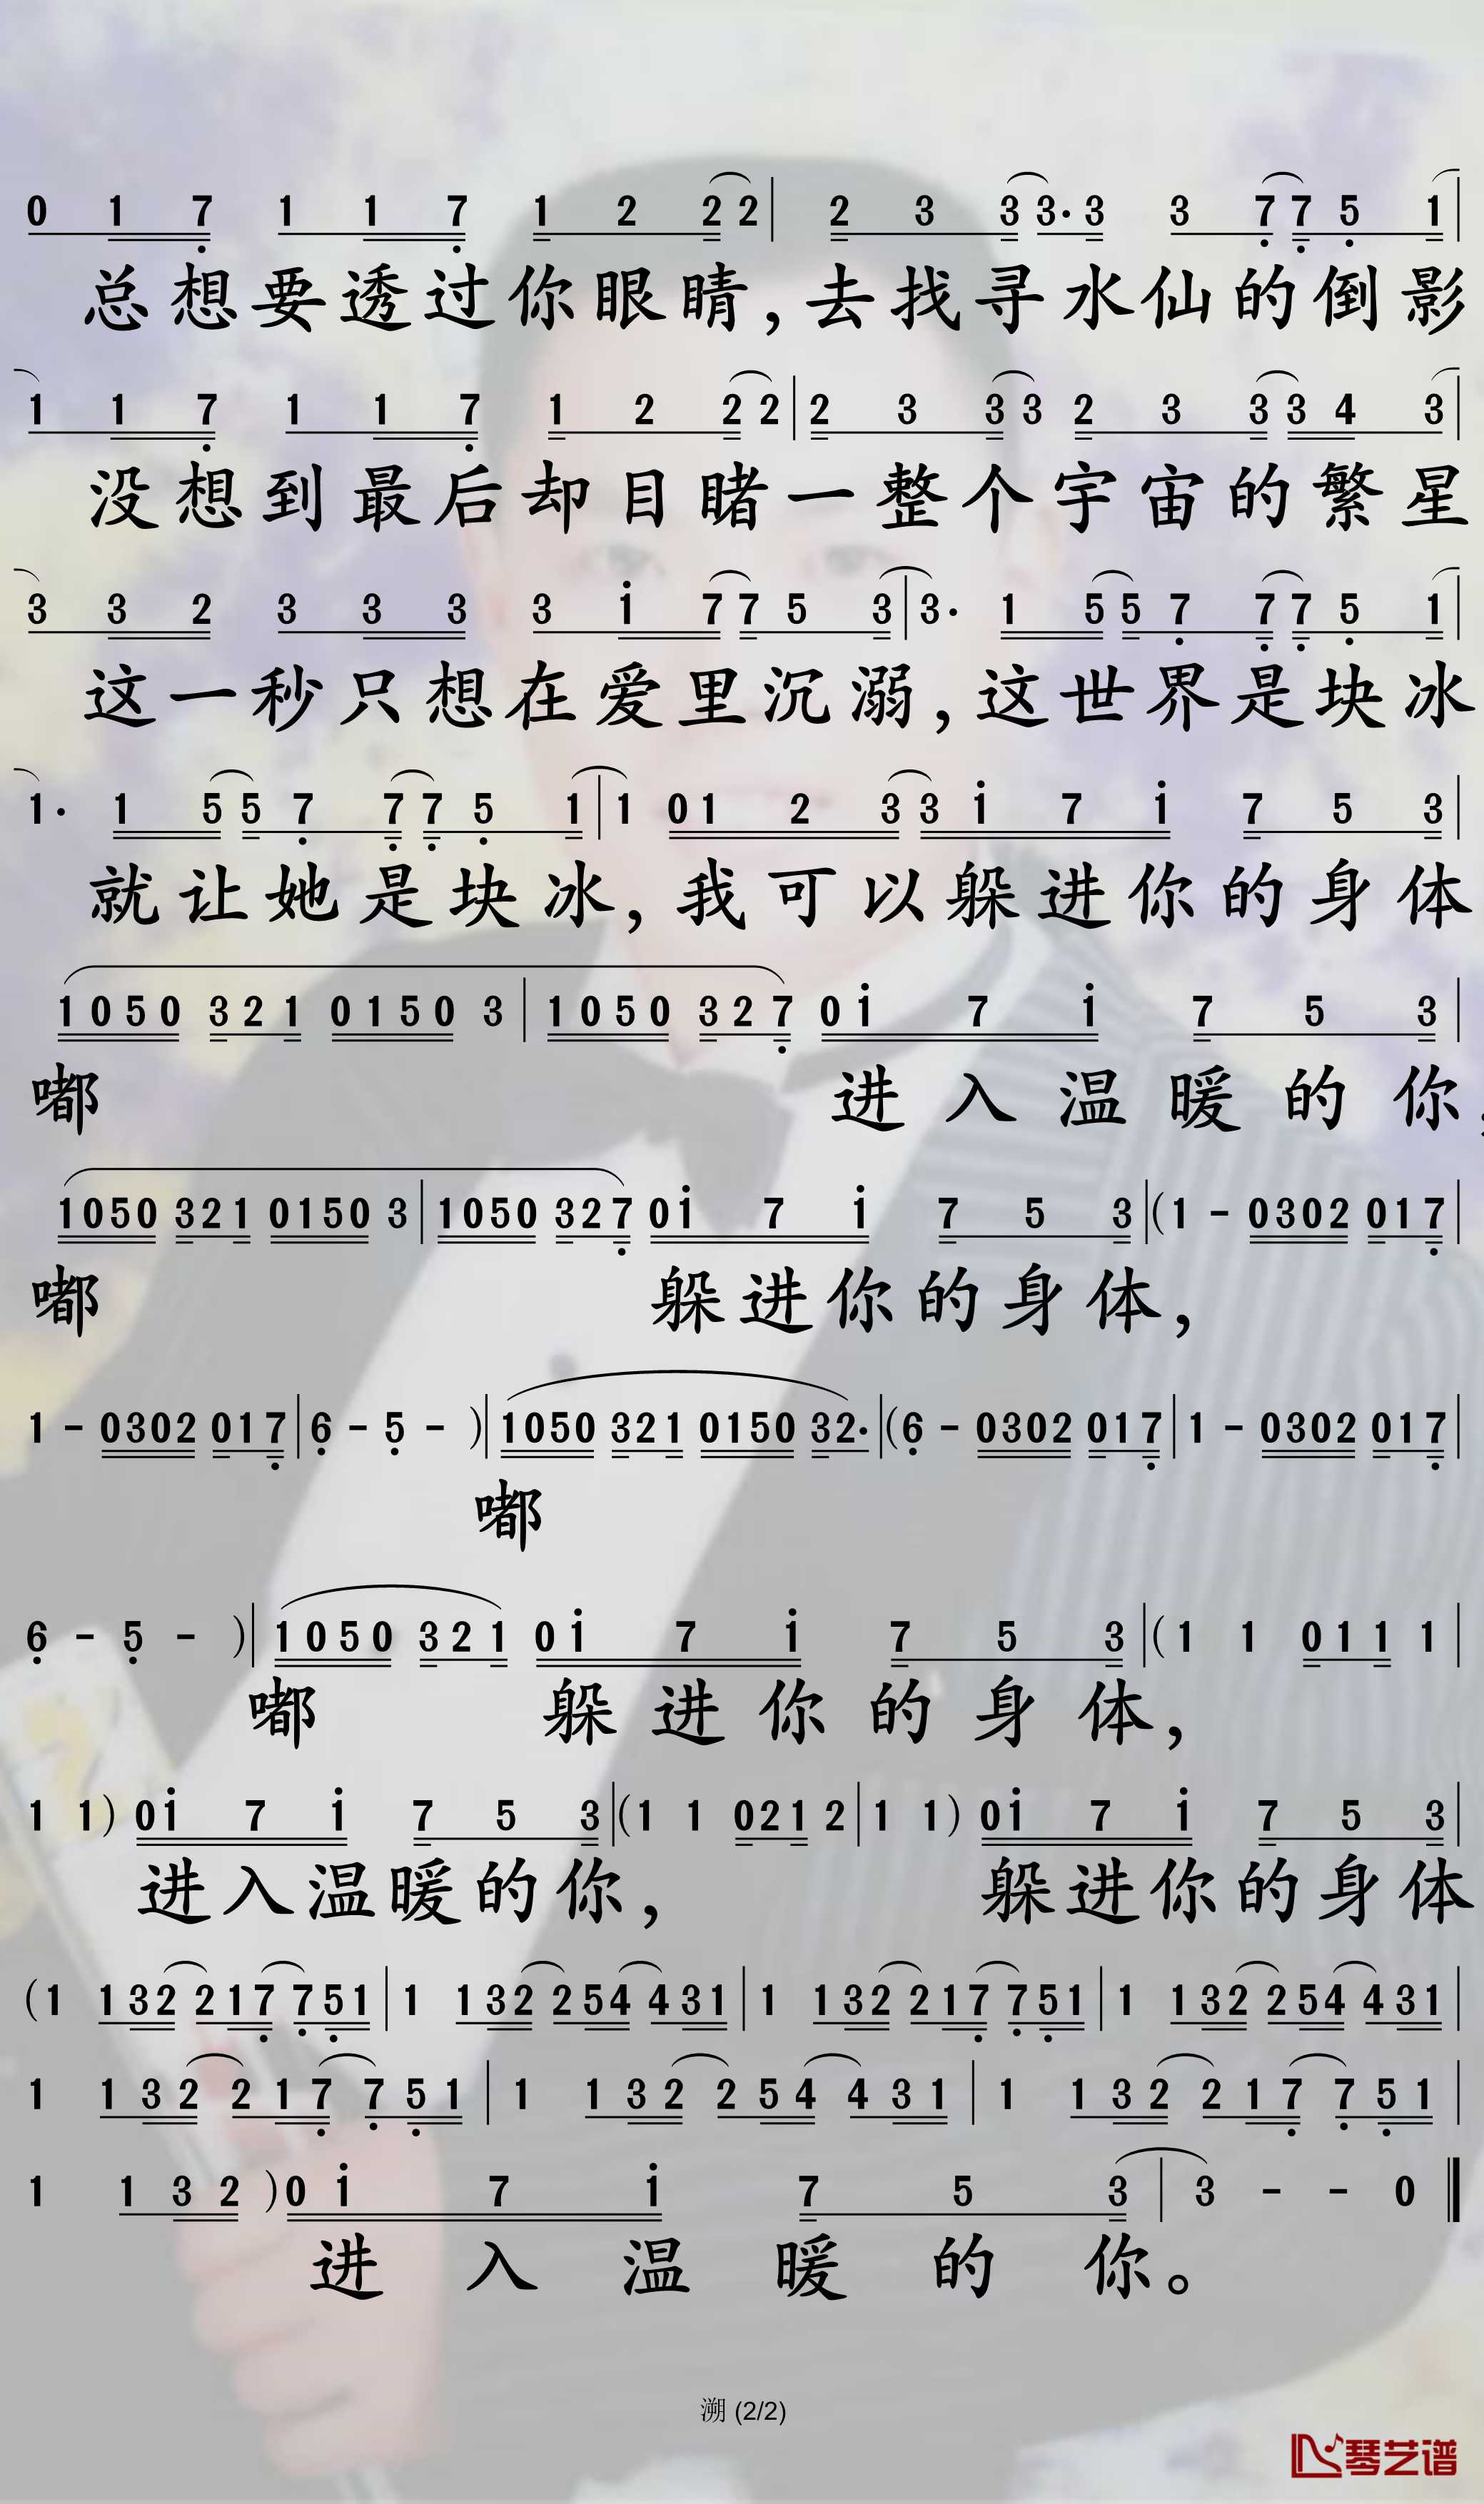 0 1 7 1 1 7 1 2 2 2 | 2 3 3 3· 3 3 7 7 5 1 |
总想要透过你眼睛,去找寻水仙的倒影
1 1 7 1 1 7 1 2 2 2 | 2 3 3 3 2 3 3 3 4 3 |
没想到最后却目睹一整个宇宙的繁星
3 3 2 3 3 3 3 1 7 7 5 3 | 3· 1 5 5 7 7 7 5 1 |
这一秒只想在爱里沉溺,这世界是块冰
1· 1 5 5 7 7 7 5 1 | 1 0 1 2 3 3 1 7 1 7 5 3 |
就让她是块冰,我可以躲进你的身体
1 0 5 0 3 2 1 0 1 5 0 3 | 1 0 5 0 3 2 7 0 1 7 1 7 5 3 |
嘟 进入温暖的你,
1 0 5 0 3 2 1 0 1 5 0 3 | 1 0 5 0 3 2 7 0 1 7 1 7 5 3 | (1 - 0 3 0 2 0 1 7 |
嘟 躲进你的身体,
1 - 0 3 0 2 0 1 7 | 6 - 5 - ) | 1 0 5 0 3 2 1 0 1 5 0 3 2· | (6 - 0 3 0 2 0 1 7 | 1 - 0 3 0 2 0 1 7 |
嘟
6 - 5 - ) | 1 0 5 0 3 2 1 0 1 7 1 7 5 3 | (1 1 0 1 1 1 |
嘟 躲进你的身体,
1 1 ) 0 1 7 1 7 5 3 | (1 1 0 2 1 2 | 1 1 ) 0 1 7 1 7 5 3 |
进入温暖的你, 躲进你的身体
(1 1 3 2 2 1 7 7 5 1 | 1 1 3 2 2 5 4 4 3 1 | 1 1 3 2 2 1 7 7 5 1 | 1 1 3 2 2 5 4 4 3 1 |
1 1 3 2 2 1 7 7 5 1 | 1 1 3 2 2 5 4 4 3 1 | 1 1 3 2 2 1 7 7 5 1 |
1 1 3 2 ) 0 1 7 1 7 5 3 | 3 - - 0 ‖
进入温暖的你。
溯 (2/2)
琴艺谱